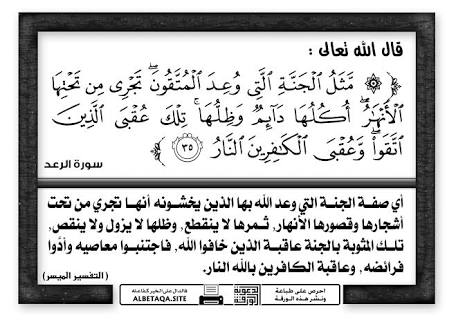 قال الله تعالى :
﴿ ۞ مَّثَلُ ٱلْجَنَّةِ ٱلَّتِى وُعِدَ ٱلْمُتَّقُونَ ۖ تَجْرِى مِن تَحْتِهَا
ٱلْأَنْهَـٰرُ ۖ أُكُلُهَا دَآئِمٌ وَظِلُّهَا ۚ تِلْكَ عُقْبَى ٱلَّذِينَ
ٱتَّقَوا۟ ۖ وَّعُقْبَى ٱلْكَـٰفِرِينَ ٱلنَّارُ ٣٥ ﴾
سورة الرعد
أي صفة الجنة التي وعد الله بها الذين يخشونه أنها تجري من تحت
أشجارها وقصورها الأنهار, ثمرها لا ينقطع, وظلها لا يزول ولا ينقص,
تلك المثوبة بالجنة عاقبة الذين خافوا الله, فاجتنبوا معاصيه وأدَّوا
فرائضه, وعاقبة الكافرين بالله النار.
(التفسير الميسر)
احرص على طباعة
ونشر هذه الورقة
الدعوية
الورقة
فالدال على الخير كفاعله
ALBETAQA.SITE